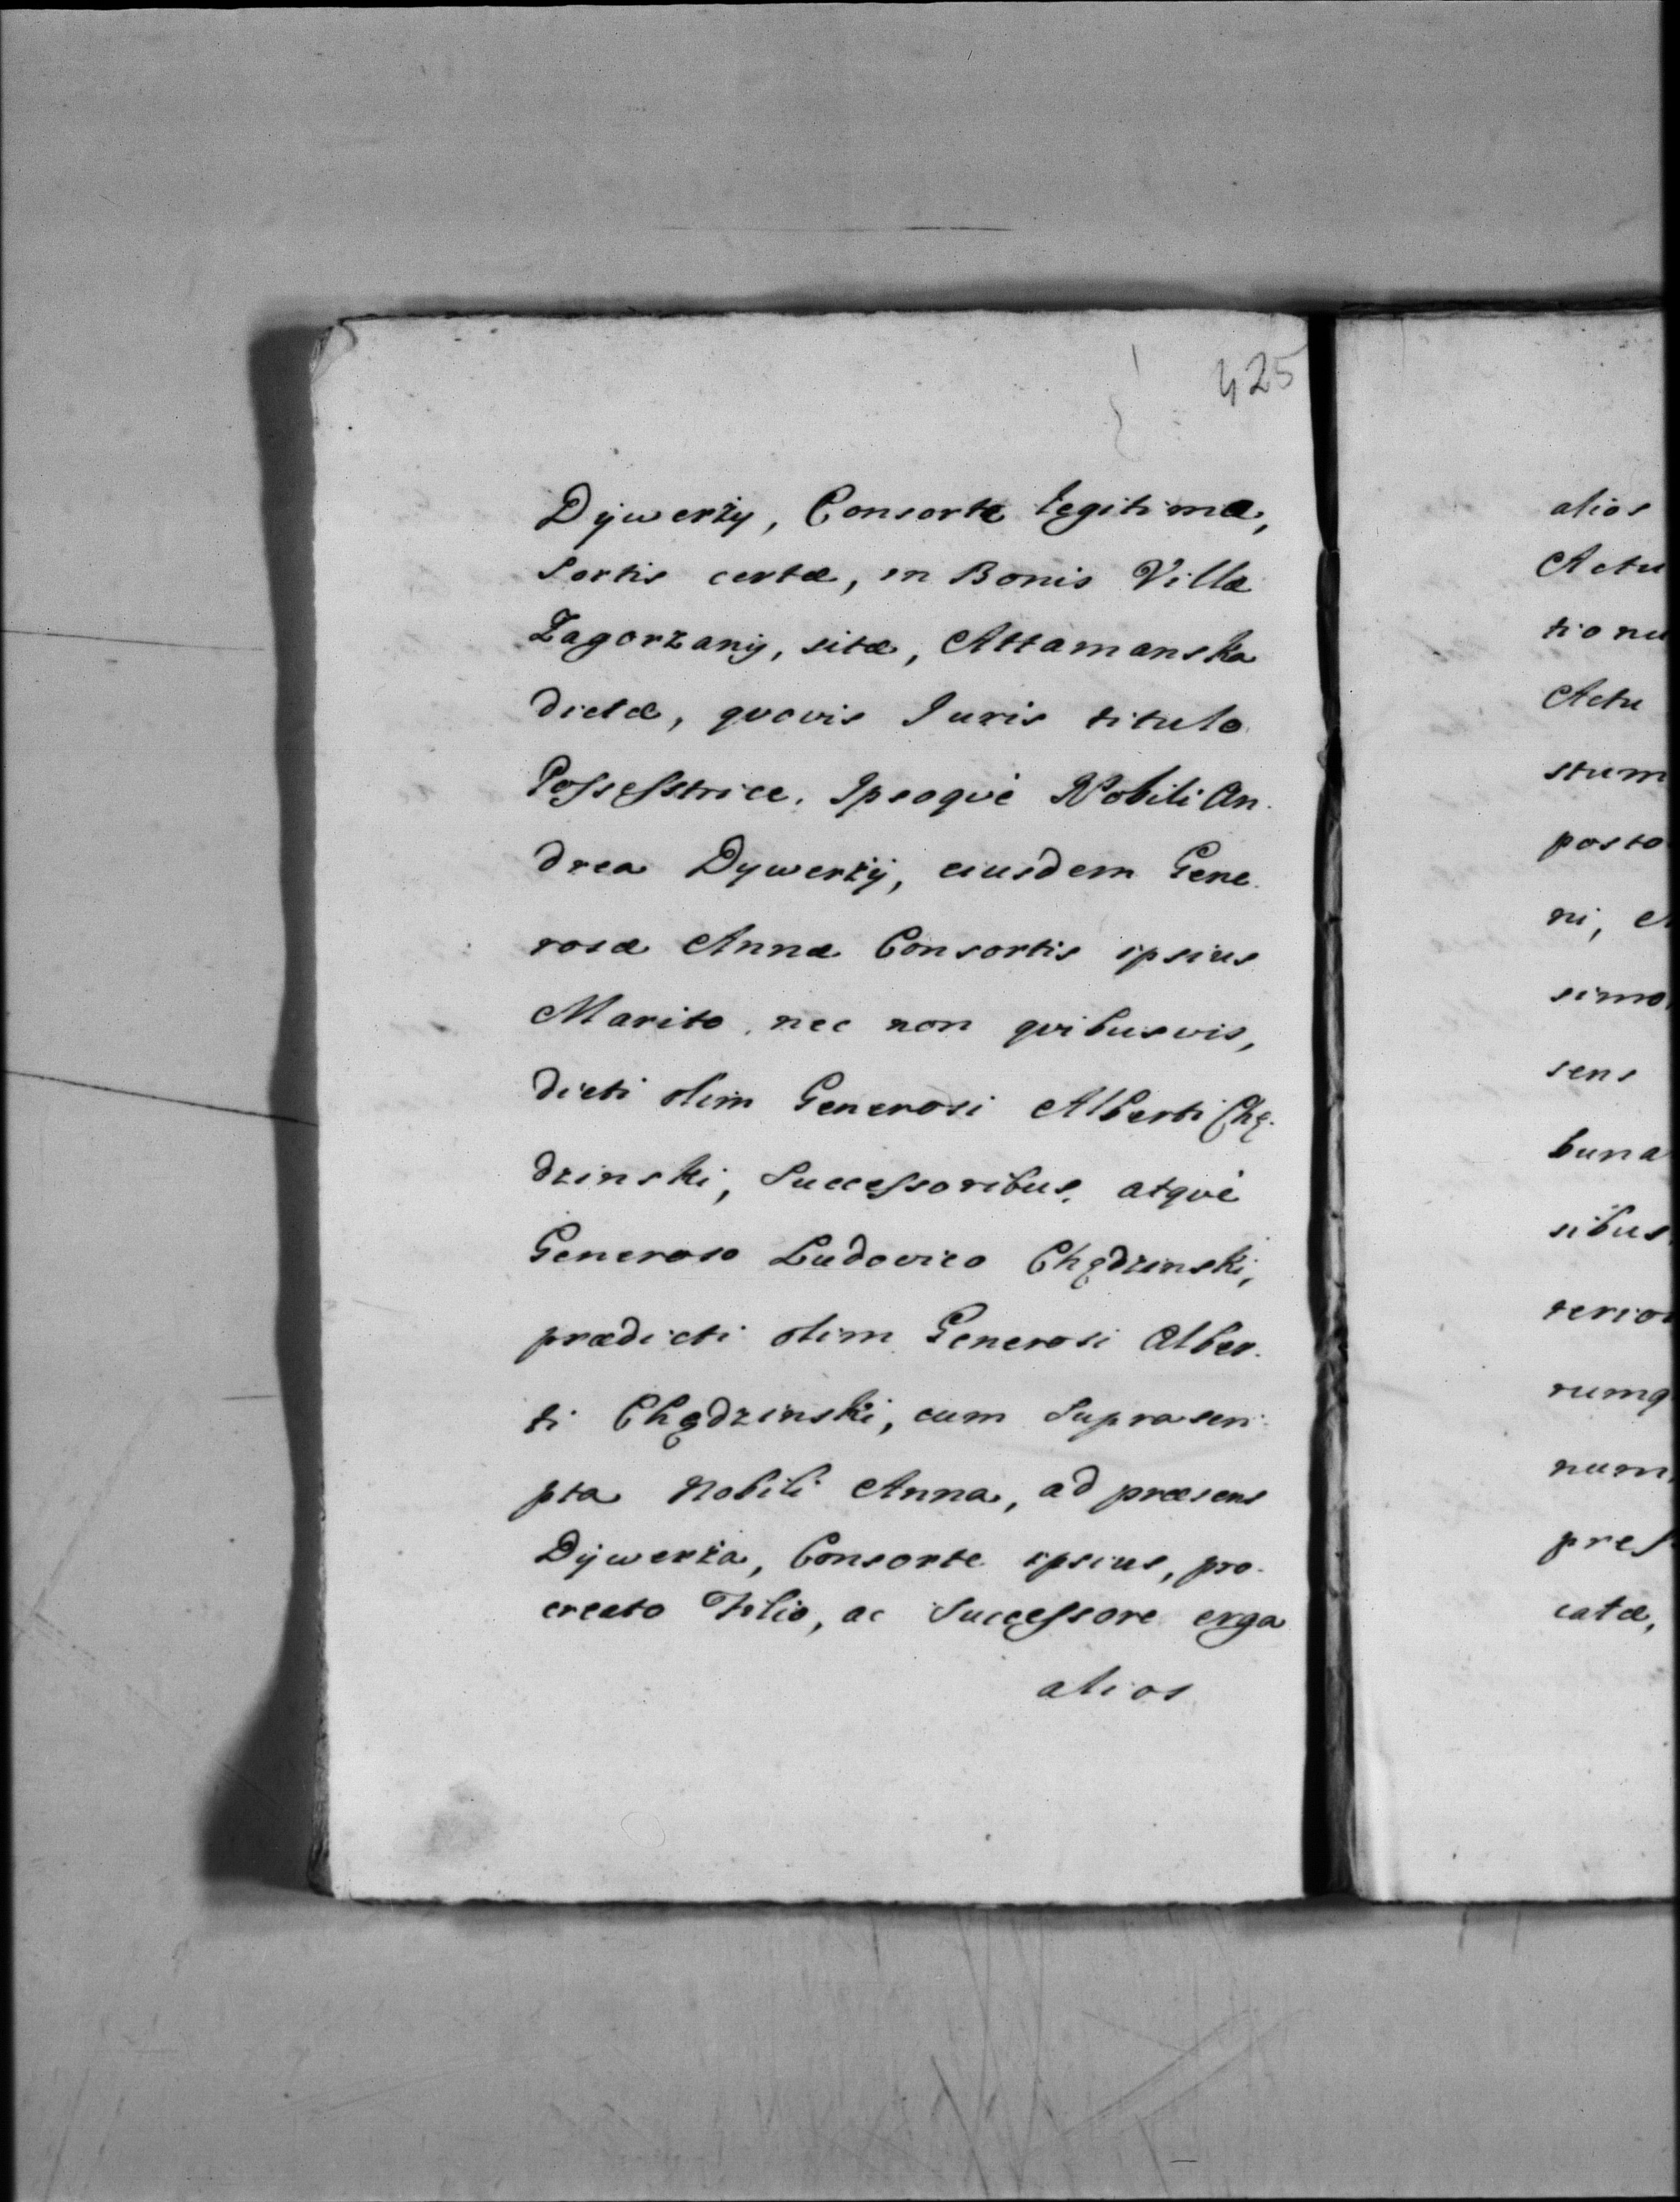 425
Dÿwerży, Consorte legitima,
Sortis certæ, in Bonis Villæ
Zagorzanÿ, sitæ, Attamanska
dictæ, qvovis Juris titulo
Possesstrice. Ipsoqvè Nobili An-
drea Dywerżÿ, eiusdem Gene-
rosæ Annæ Consortis ipsius
Marito, nec non qvibusvis,
dicti olim Generosi Alberti Chę-
dzinski, Successoribus, atqvè
Generoso Ludovico Chędzinski,
prædicti olim Generosi Alber-
ti Chędzinski, cum Suprascri-
pta Nobili Anna, ad præsens
Dÿwerża, Consorte ipsius, pro-
creato Filio, ac Successore erga
alios
alios
Actu
tionu
Actu
stum
posto
ni, A
simo
sens
buna
sibus
terior
rumq
num
pres
catæ,